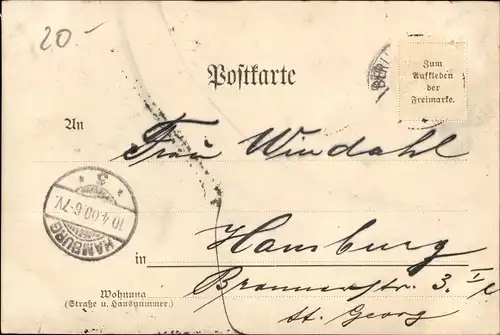 20-
Postkarte
Zum
Aufkleben
der
Freimarke.
An
Frau Windahl
HAMBURG
10.4.00.6-7V.
* 5 *
in Hamburg
Wohnung
(Straße u. Hausnummer.)
3. I/
St. Georg